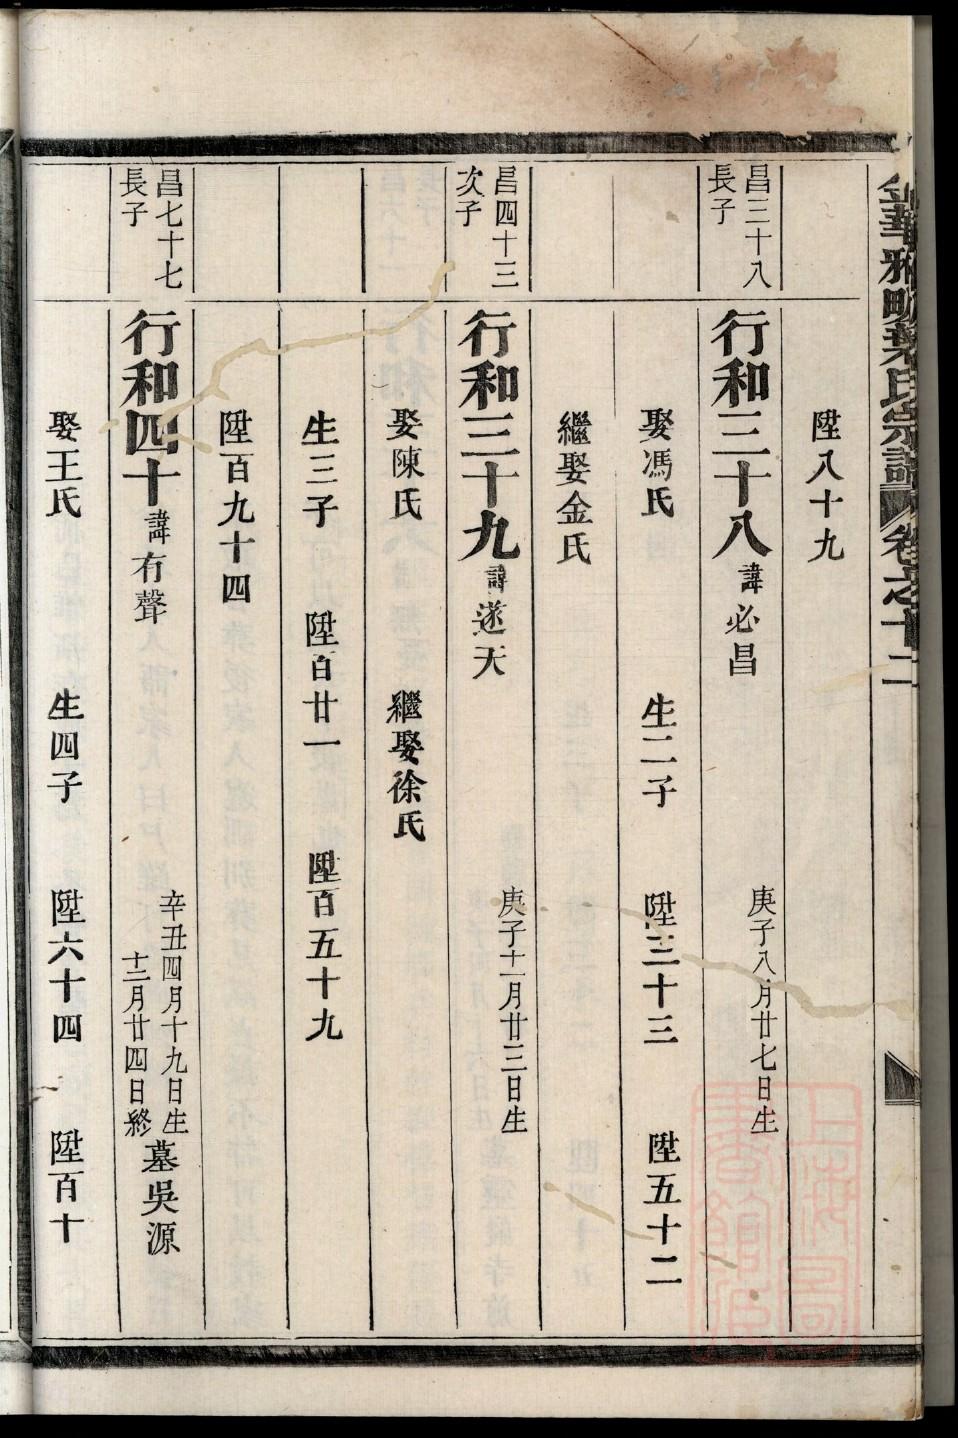 金華雅畈葉氏宗譜 卷之十二
陞八十九
昌三十八
長子
行和三十八 諱必昌 庚子八月廿七日生
娶馮氏 生二子 陞三十三 陞五十二
繼娶金氏
昌四十三
次子
行和三十九 諱遂天 庚子十一月廿三日生
娶陳氏 繼娶徐氏
生三子 陞百廿一 陞百五十九
陞百九十四
昌七十七
長子
行和四十 諱有聲 辛丑四月十九日生
十二月廿四日終 墓吳源
娶王氏 生四子 陞六十四 陞百十
上海圖書館藏